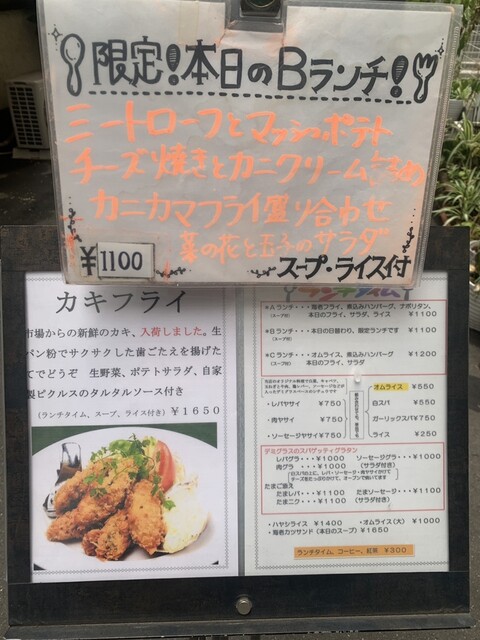 限定!本日のBランチ!
ミートローフとマッシュポテト
チーズ焼きとカニクリーム
カニカマフライ盛り合わせ
菜の花と玉子のサラダ
¥1100
スープ・ライス付
カキフライ
市場からの新鮮のカキ、入荷しました。生
パン粉でサクサクした歯ごたえを揚げた
てでどうぞ 生野菜、ポテトサラダ、自家
製ピクルスのタルタルソース付き
(ランチタイム、スープ、ライス付き) ¥1650
ランチタイム
*Aランチ・・・海老フライ、煮込みハンバーグ、ナポリタン、
(スープ付) 本日のフライ、サラダ、ライス ¥1100
*Bランチ・・・本日の日替わり、限定ランチです ¥1100
(スープ付)
*Cランチ・・・オムライス、煮込みハンバーグ ¥1200
(スープ付) 本日のフライ、サラダ
・レバヤサイ ¥750
・肉ヤサイ ¥750
・ソーセージヤサイ ¥750
オムライス ¥550
白スパ ¥550
ガーリックスパ ¥750
ライス ¥250
デミグラスのスパゲッティグラタン
レバグラ・・・¥1000 ソーセージグラ・・・¥1000
肉グラ ・・・¥1000 (サラダ付き)
白スパの上に、レバ・ソーセージ・肉ヤサイかけて
チーズをたっぷりかけて、オーブンで焼いてます
たまご添え
たまレバ・・・¥1100 たまソーセージ・・・¥1100
たまニク・・・¥1100 (サラダ付き)
・ハヤシライス ¥1400 ・オムライス(大) ¥1000
・海老カツサンド(本日のスープ) ¥1650
ランチタイム、コーヒー、紅茶 ¥300